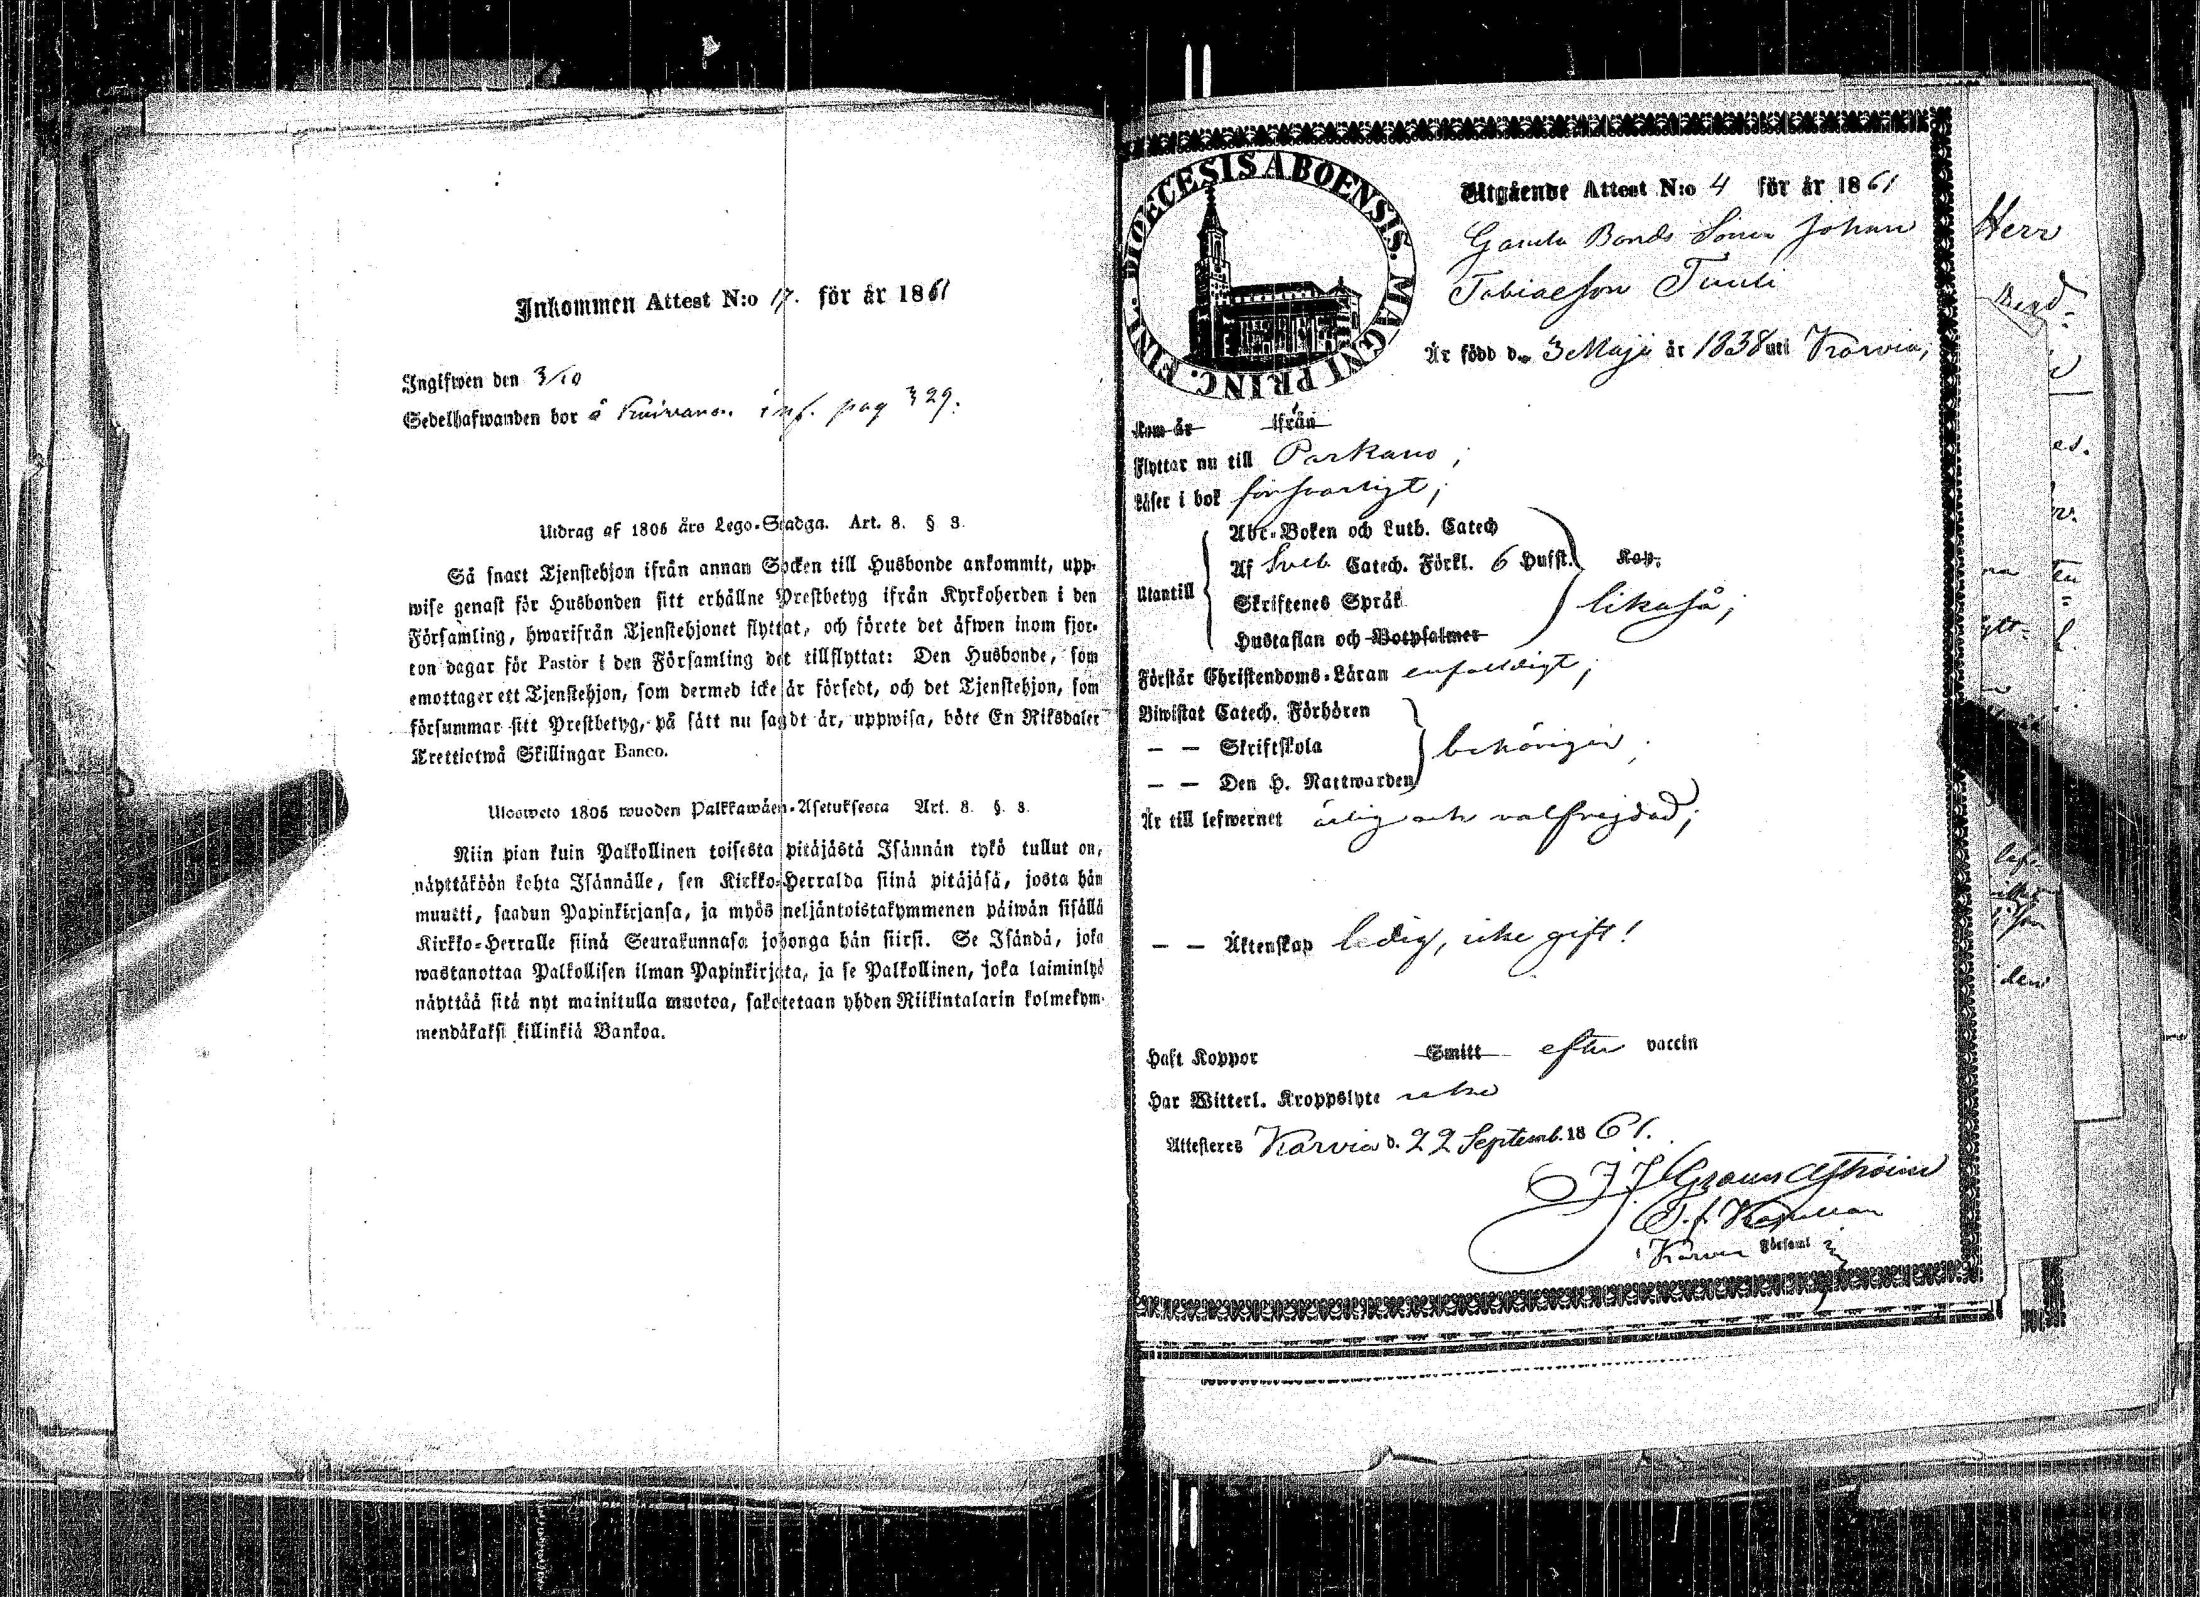 Inkommen Attest N:o 17. för år 1861
Ingifwen den 3/10
Sedelhafwanden bor å inf. pag 329.
Utdrag af 1805 års Lego-Stadga. Art. 8. § 3.
Så snart Tjenstehjon ifrån annan Socken till Husbonde ankommit, upp-
wise genast för Husbonden sitt erhållne Prestbetyg ifrån Kyrkoherden i den
Församling, hwarifrån Tjenstehjonet flyttat, och förete det äfwen inom fjor-
ton dagar för Pastor i den Församling det tillflyttat: Den Husbonde, som
emottager ett Tjenstehjon, som dermed icke är försedt, och det Tjenstehjon, som
försummar sitt Prestbetyg, på sätt nu sagdt är, uppwisa, böte En Riksdaler
Trettiotwå Skillingar Banco.
Ulosweto 1805 wuoden Palkkawäen-Asetuksesta Art. 8. §. 3.
Niin pian kuin Palkollinen toisesta pitäjästä Isännän tykö tullut on,
näyttäköön kohta Isännälle, sen Kirkko-Herralda siinä pitäjäsä, josta hän
muutti, saadun Papinkirjansa, ja myös neljäntoistakymmenen päiwän sisällä
Kirkko-Herralle siinä Seurakunnasa johonga hän siirsi. Se Isändä, joka
wastanottaa Palkollisen ilman Papinkirjata, ja se Palkollinen, joka laiminlyö
näyttää sitä nyt mainitulla muotoa, sakotetaan yhden Riikintalarin kolmekym-
mendäkaksi killinkiä Bankoa.
DIOECESIS ABOENSIS. MAGNI PRINC. FINL.
Utgående Attest N:o 4 för år 1861
Gamla Bonds Sonen Johan
Tobiaeson Tuuli
Är född d. 3 Maji år 1838 uti Karvia,
Kom år ifrån
Flyttar nu till Parkano;
Läser i bok försvarligt;
Utantill
Abc-Boken och Luth. Catech
Af Sveb. Catech. Förkl. 6 Hufst. Kap.
Skriftenes Språk
likaså;
Hustaflan och Botpsalmer
Förstår Christendoms-Läran enfaldigt;
Biwistat Catech. Förhören
— — Skriftskola
behörigen;
— — Den H. Nattwarden
Är till lefwernet ärlig och välfrejdad;
— — Äktenskap ledig, icke gift!
Haft Koppor Smitt efter vaccin
Har Witterl. Kroppslyte icke
Attesteras Karvia d. 22 Septemb. 1861.
J J Grounstroim
T. f. Kapellan
i Karvia Församl
Herr